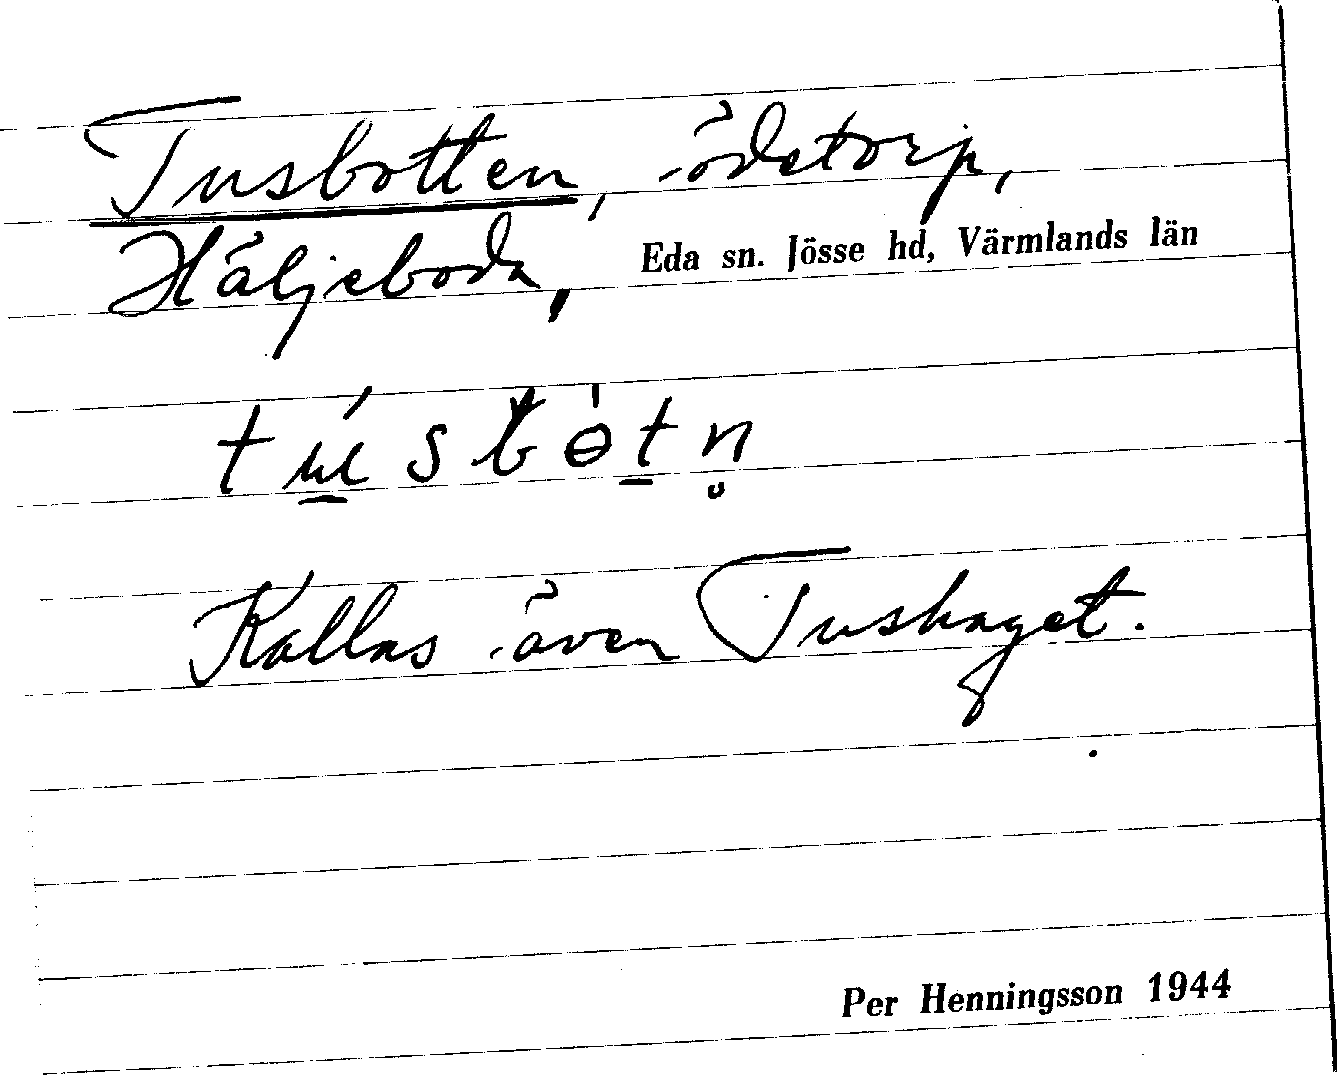 Tusbotten, ödetorp,
Häljeboda, Eda sn. Jösse hd, Värmlands län
tú̲sbɵ̀t̲n̥
Kallas även Tushaget.
Per Henningsson 1944